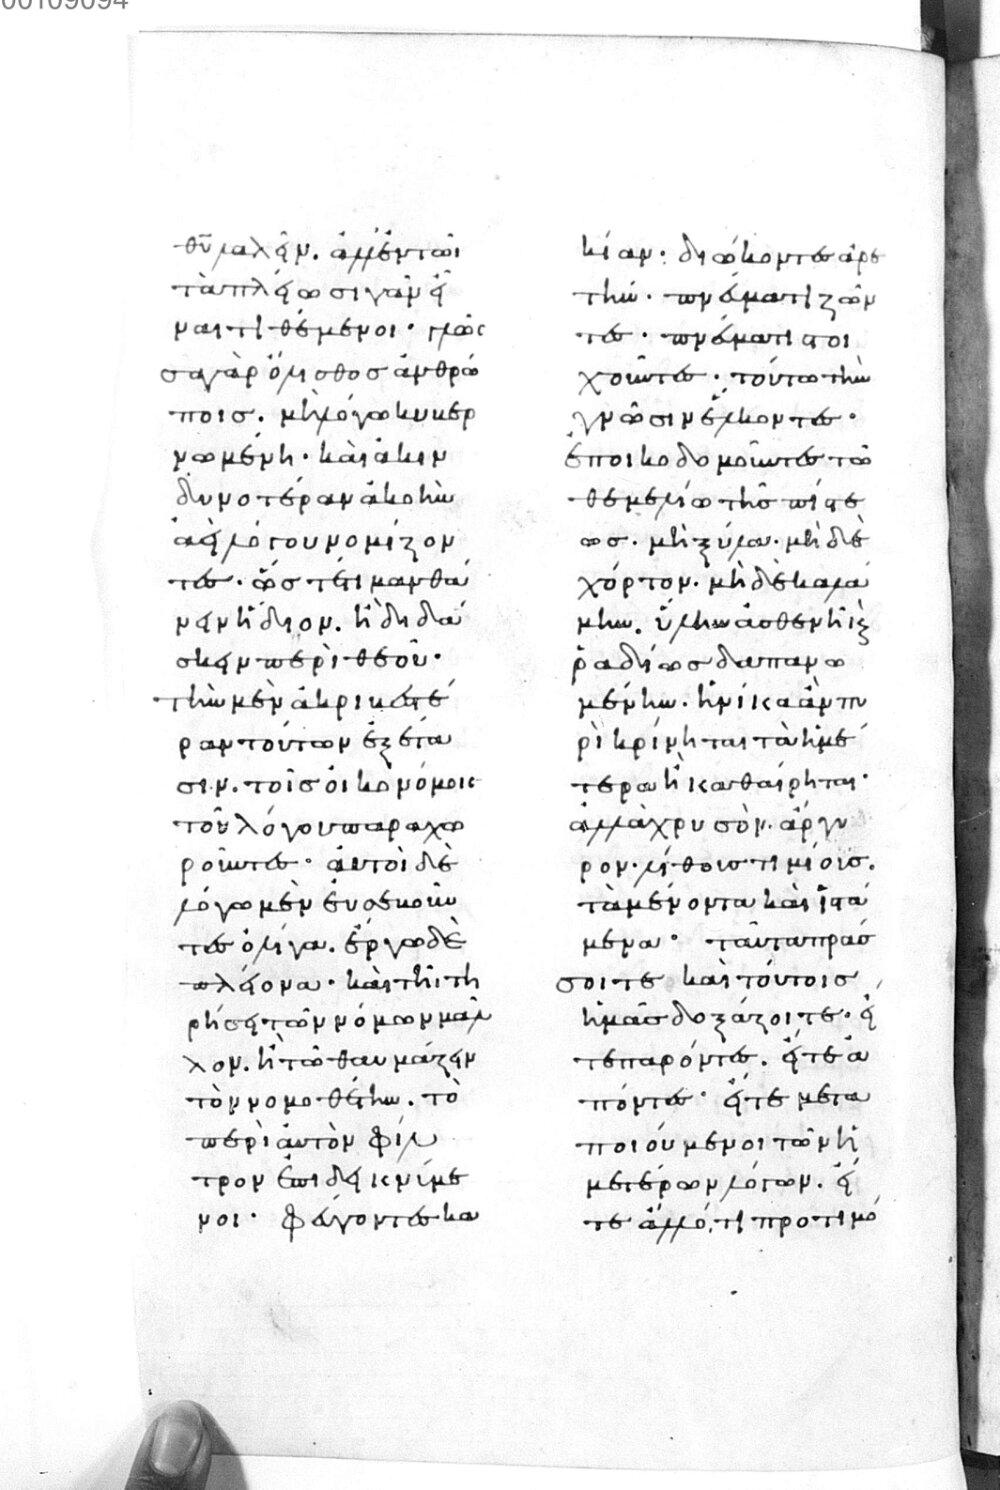 00109094
θῦ λαλεῖν. ἀλλ' ἐν τῶι
τὰ πλείω σιγᾶν εἶ
ναι τιθέμενοι· γλῶσ
σα γὰρ ὄλισθος ἀνθρώ
ποις. μὴ λόγω κυβερ
νωμένη· καὶ ἀκιν
δυνοτέραν ἀκοὴν
ἀεὶ λόγου νομίζον
τες· ὥς τέ τι μανθά
νειν ἥδιον. ἢ διδά
σκειν περὶ θεοῦ·
τὴν μὲν ἀκριβεστέ
ραν τούτων ἐξέτα
σιν. τοῖς οἰκονόμοις
τοῦ λόγου παραχω
ροῦντες· αὐτοὶ δὲ
λόγω μὲν εὐσεβοῦν
τες ὀλίγα. ἔργω δὲ
πλείονα· καὶ τῆι τη
ρήσει τῶν νόμων μᾶλ
λον. ἢ τῶ θαυμάζειν
τὸν νομοθέτην. τὸ
περὶ αὐτὸν φίλ
τρον ἐπιδεικνύμε
νοι· φεύγοντες κα
κίαν· διώκοντες ἀρε
τήν· πνεύματι ζῶν
τες· πνεύματι στοι
χοῦντες· τούτω τὴν
γνῶσιν ἕλκοντες·
ἐποικοδομοῦντες τῶ
θεμελίω τῆς πίστε
ως· μὴ ξύλα· μὴ δὲ
χόρτον· μὴ δὲ καλά
μην. ὕλην ἀσθενῆ ἳξ
ῥαδίως δαπανω
μένην. ἡνίκα ἂν πυ
ρὶ κρίνηται τὰ ἡμέ
τερα ἢ καθαίρηται·
ἀλλὰ χρυσὸν. ἄργυ
ρον· λίθοις τιμίοις.
τὰ μένοντα καὶ ἱστά
μενα· ταῦτα πράσ
σοιτε καὶ τούτοις
ἡμᾶς δοξάζοιτε· εἴ
τε παρόντες. εἴτε ἀ
πόντες· εἴτε μετα
ποιούμενοι τῶν ἡ
μετέρων λόγων. εἴ
τε ἄλλό, τι προτιμό